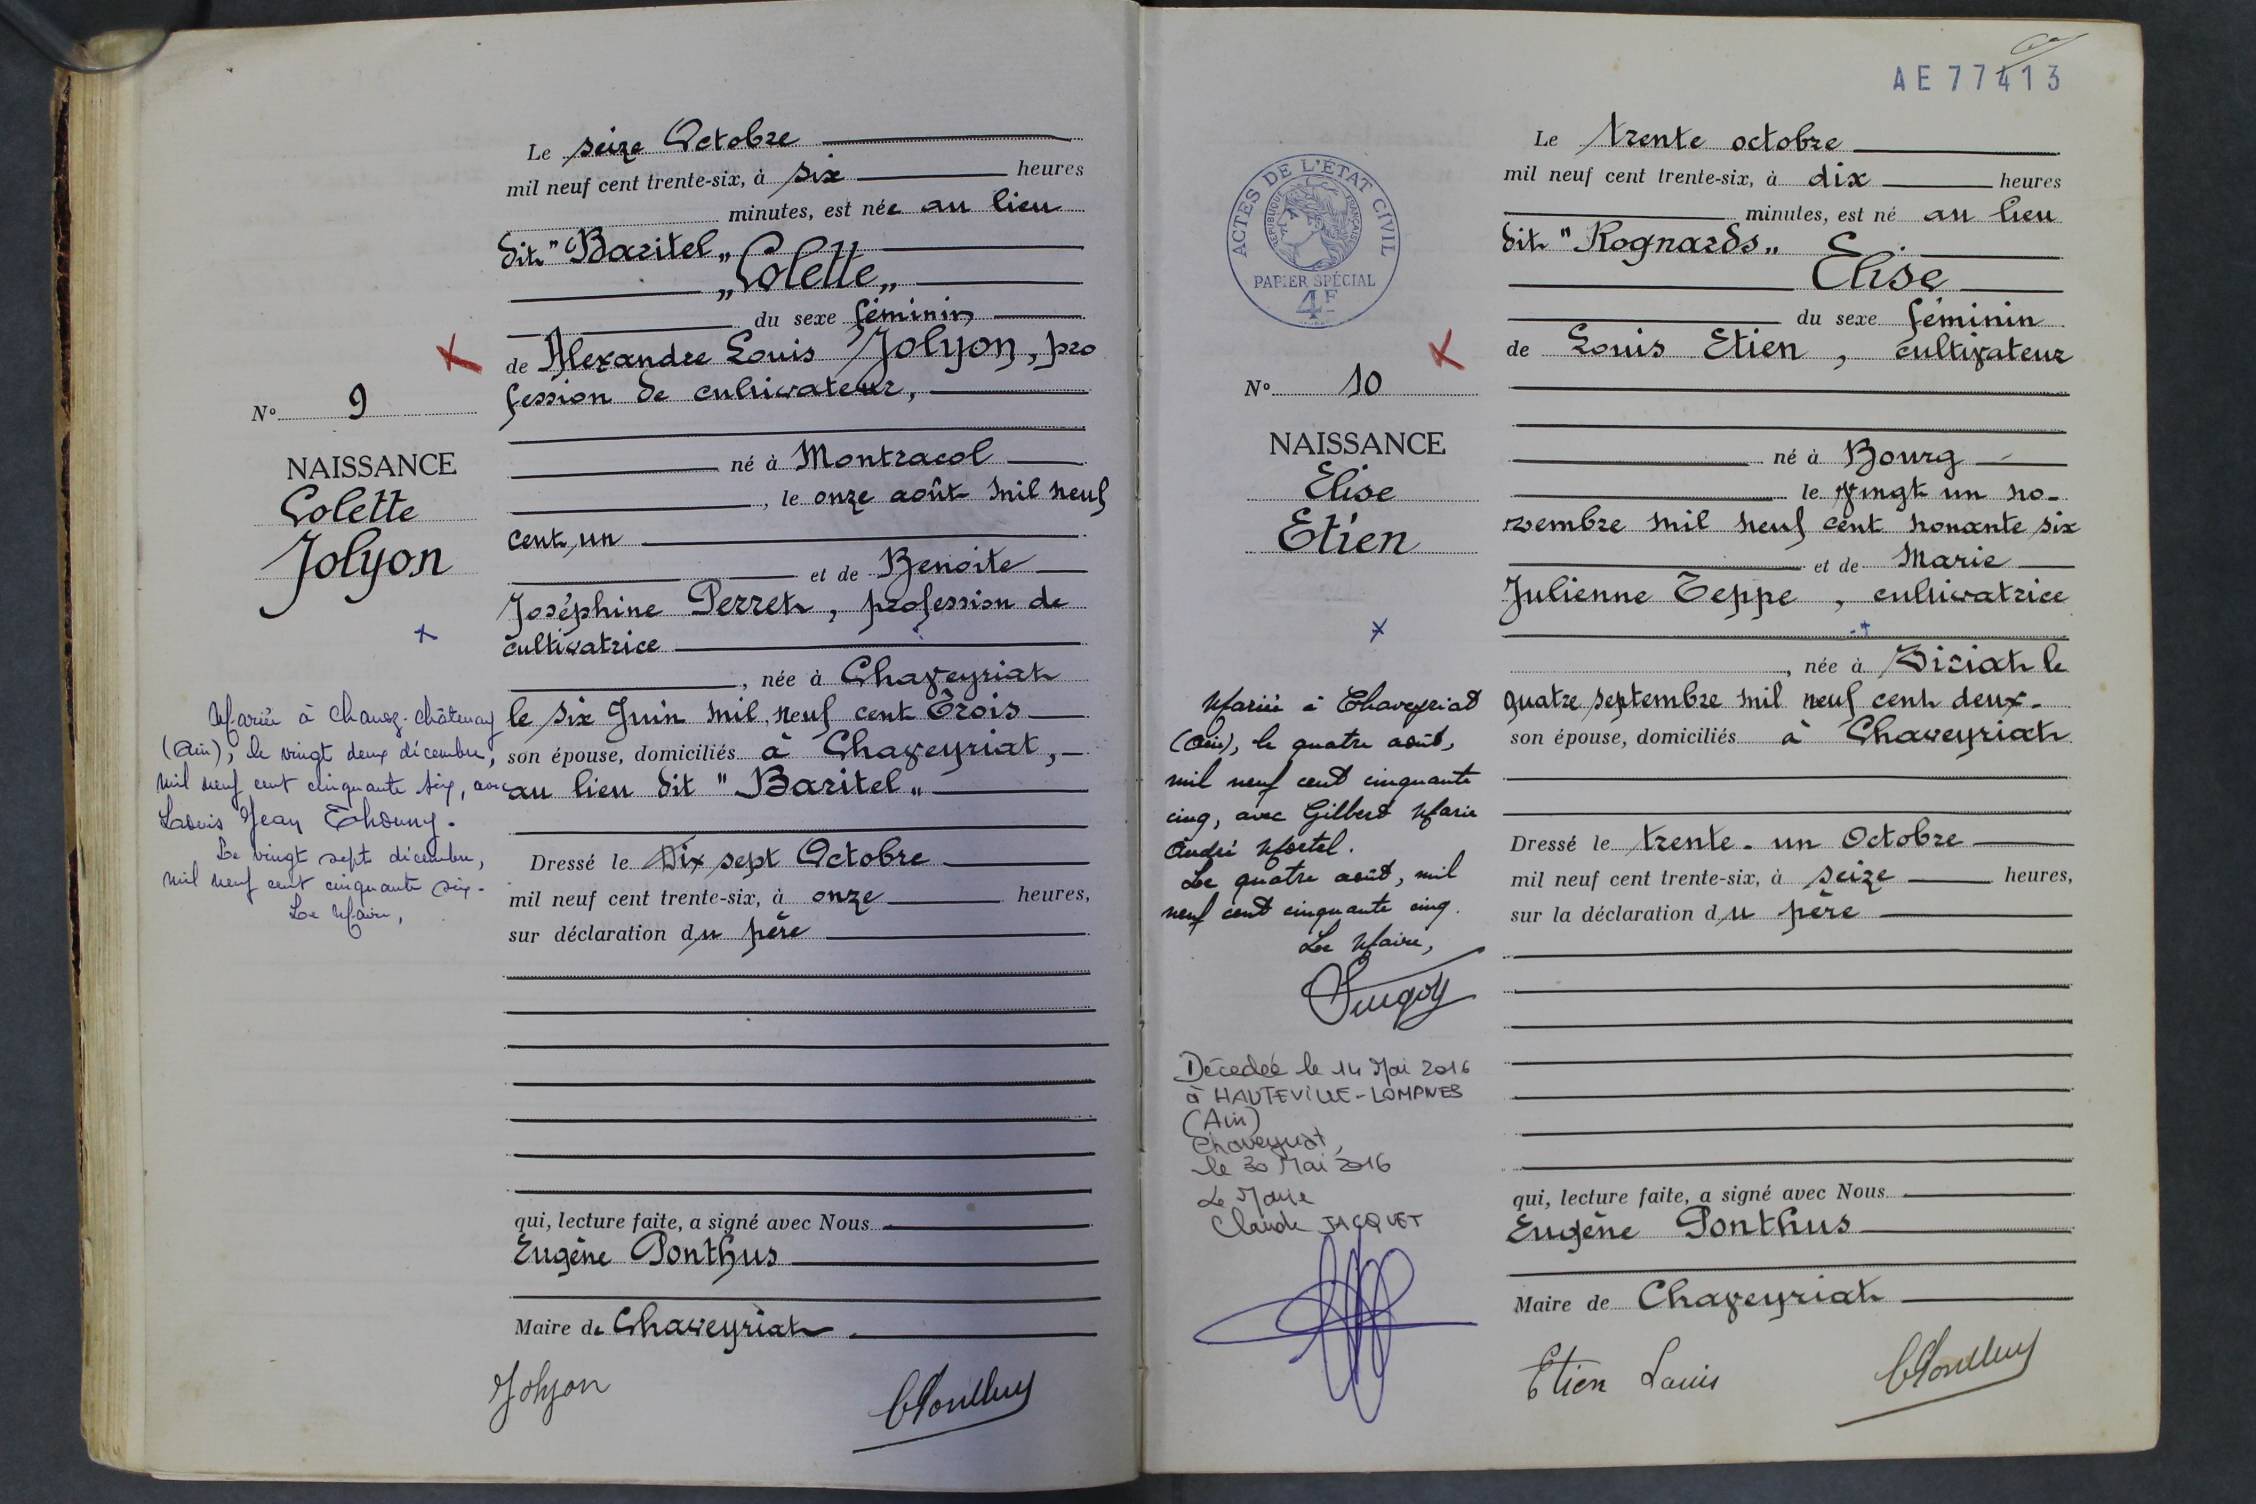 Le seize Octobre
mil neuf cent trente-six, à six heures
minutes, est née au lieu
dit "Baritel"
"Colette"
du sexe féminin
de Alexandre Louis Jolyon, pro
fession de cultivateur,
né à Montracol
, le onze août mil neuf
cent un
et de Benoite
Joséphine Perret, profession de
cultivatrice
, née à Chaveyriat
le six Juin mil neuf cent Trois
son épouse, domiciliés à Chaveyriat,
au lieu dit "Baritel"
Dressé le Dix sept Octobre
mil neuf cent trente-six, à onze heures,
sur déclaration du père
qui, lecture faite, a signé avec Nous
Eugène Ponthus
Maire de Chaveyriat
Jolyon
No 9
NAISSANCE
Colette
Jolyon
Mariée à Chanoz-Châtenay
(Ain), le vingt deux décembre,
mil neuf cent cinquante six, avec
Louis Jean Thouny.
Le vingt sept décembre,
mil neuf cent cinquante six.
Le Maire,
AE77413
Le trente octobre
mil neuf cent trente-six, à dix heures
minutes, est né au lieu
dit "Rognards"
Elise
du sexe féminin
de Louis Etien, cultivateur
né à Bourg
le vingt un no-
vembre mil neuf cent nonante six
et de Marie
Julienne Teppe, cultivatrice
, née à Biziat le
quatre septembre mil neuf cent deux.
son épouse, domiciliés à Chaveyriat
Dressé le trente-un Octobre
mil neuf cent trente-six, à seize heures,
sur la déclaration du père
qui, lecture faite, a signé avec Nous
Eugène Ponthus
Maire de Chaveyriat
Etien Louis
ACTES DE L'ÉTAT CIVIL
RÉPUBLIQUE FRANÇAISE
PAPIER SPÉCIAL
4F
No 10
NAISSANCE
Elise
Etien
Mariée à Chaveyriat
(Ain), le quatre août,
mil neuf cent cinquante
cinq, avec Gilbert Marie
André Mortel.
Le quatre août, mil
neuf cent cinquante cinq.
Le Maire,
Décédée le 14 Mai 2016
à HAUTEVILLE-LOMPNES
(Ain)
Chaveyriat,
le 30 Mai 2016
Le Maire
Claude JACQUET